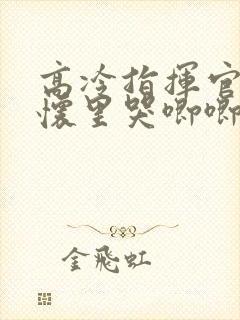 高冷指揮官
懷里哭唧唧
金飛虹